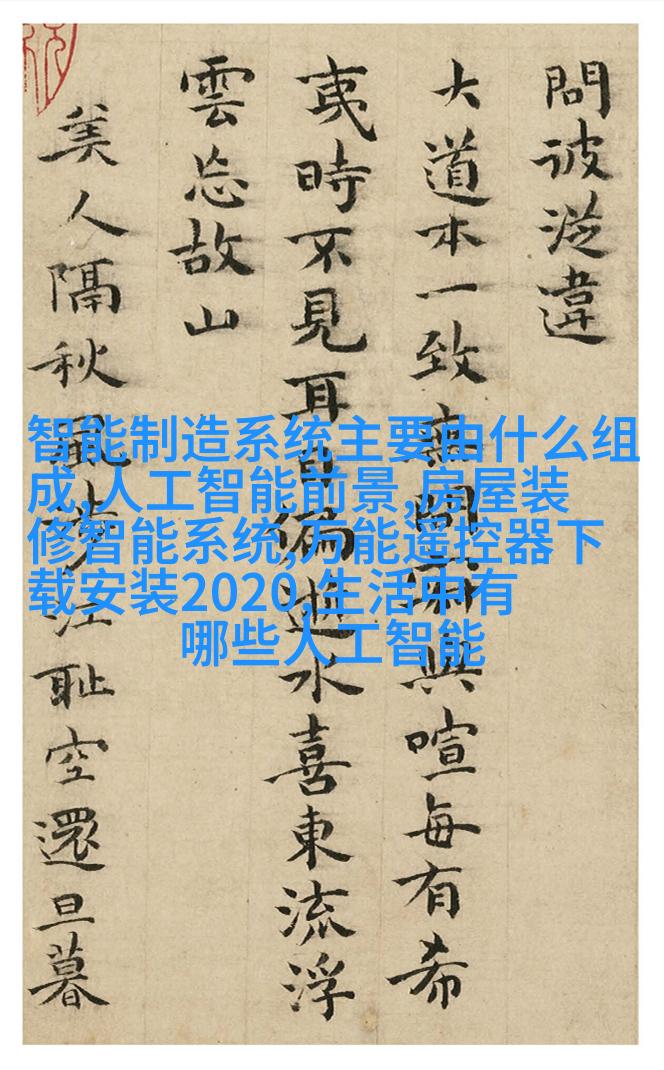 問彼從違
大道本一致無間與喧每有希
夷時不見耳偏逝水喜東流浮
雲忘故山
美人隔秋風江恥空還旦暮
智能制造系统主要由什么组
成,人工智能前景,房屋装
修智能系统,万能遥控器下
载安装2020,生活中有
哪些人工智能